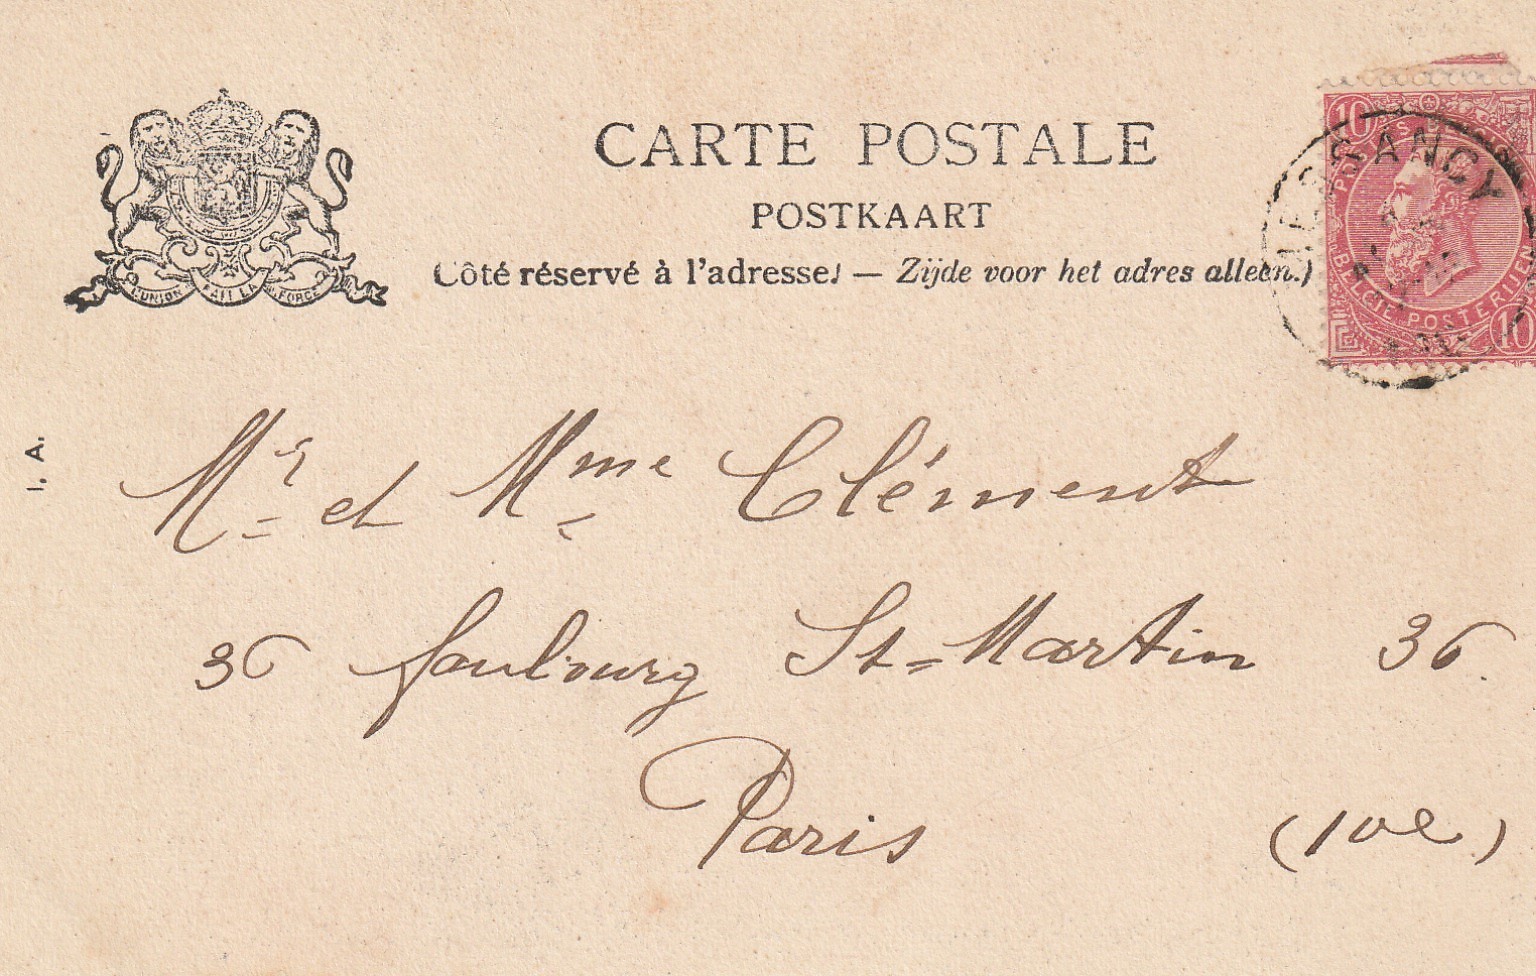 CARTE POSTALE
POSTKAART
Côté réservé à l'adresse.) — Zijde voor het adres alleen.)
L'UNION FAIT LA FORCE
10
BELGIE POSTERIJEN
10
I. A.
Mr et Mme Clément
36 faubourg St-Martin 36.
Paris (10e)